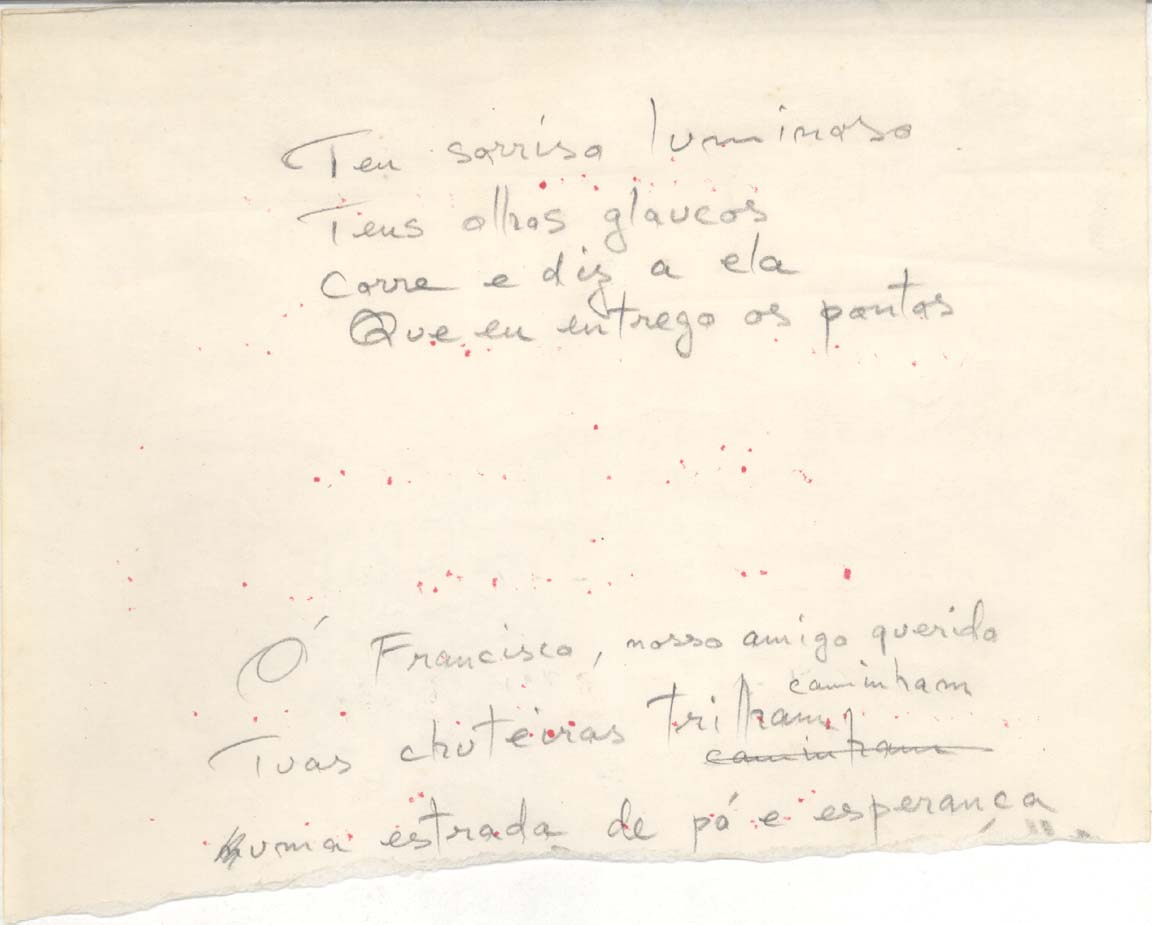 Teu sorriso luminoso
Teus olhos glaucos
Corre e diz a ela
Que eu entrego os pontos
Ó Francisco, nosso amigo querido
caminham
Tuas chuteiras trilham
caminham
Numa estrada de pó e esperança